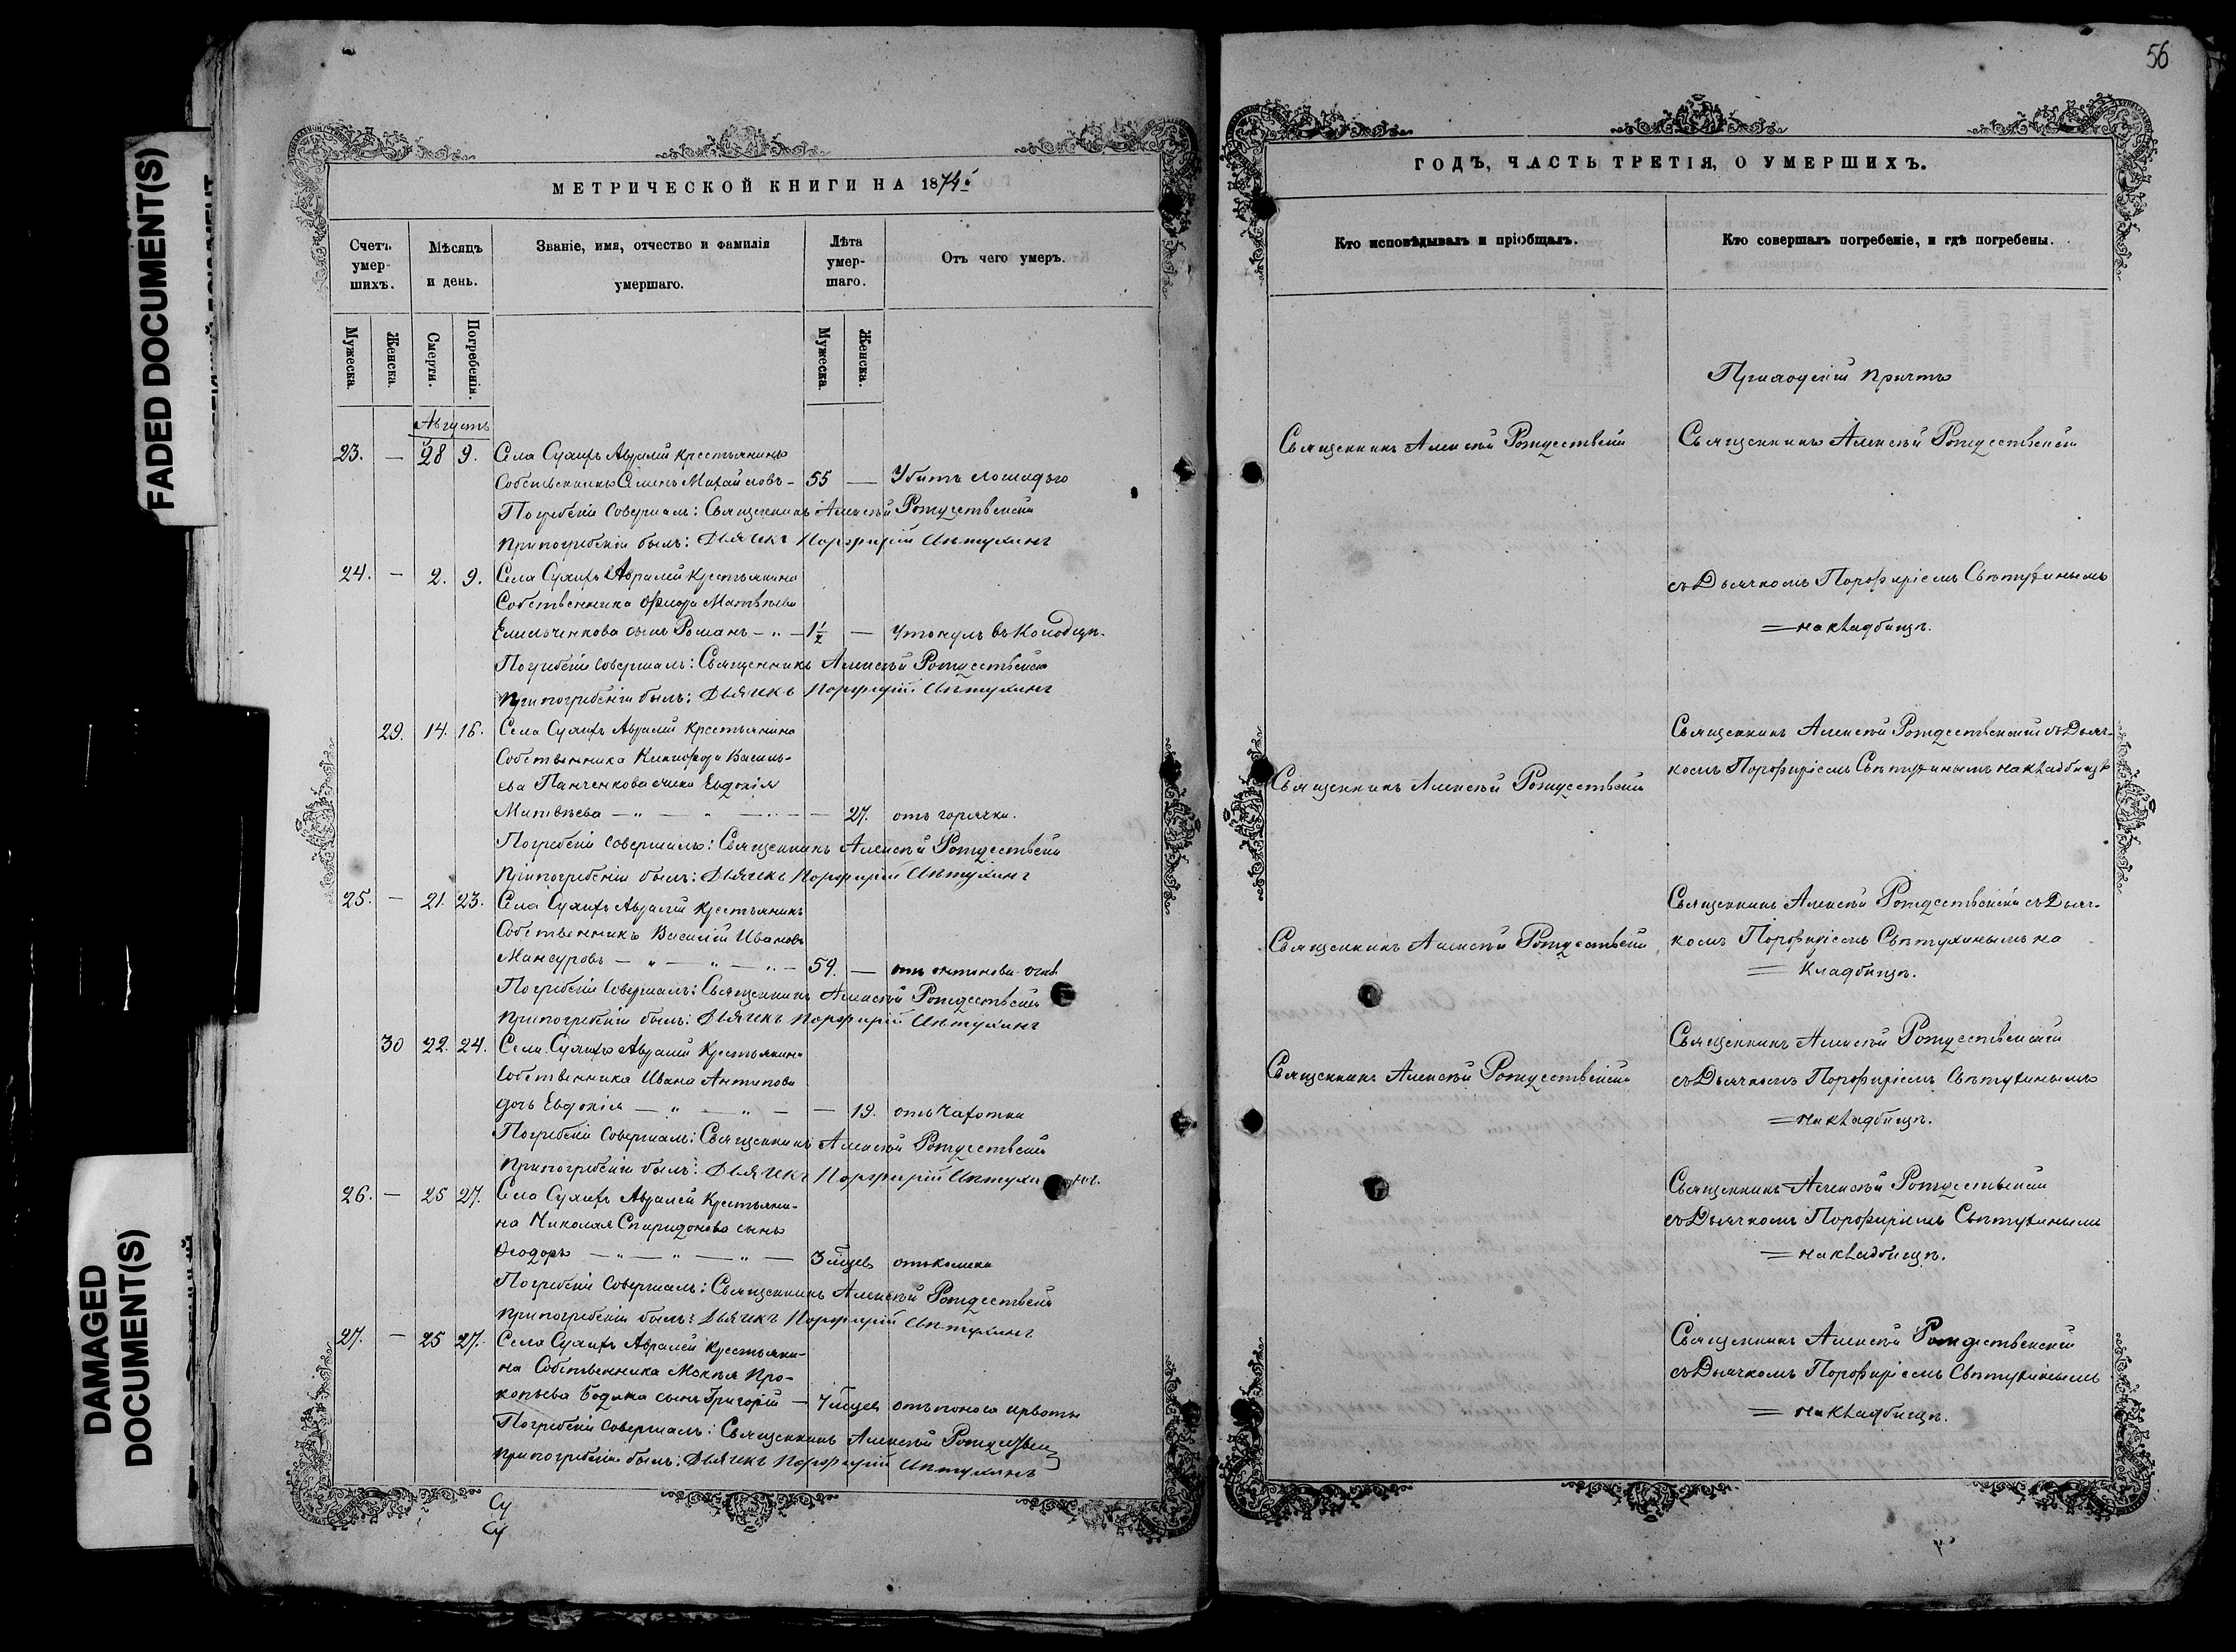 56
FADED DOCUMENT(S)
DAMAGED
DOCUMENT(S)
МЕТРИЧЕСКОЙ КНИГИ НА 1874
Счетъ умер-шихъ.
Мѣсяцъ и день.
Званіе, имя, отчество и фамилія умершаго.
Лѣта умер-шаго.
Отъ чего умеръ.
Мужеска.
Женска.
Смерти.
Погребенія.
Мужеска.
Женска.
Августъ
23. — 28 9. Села Сухихъ крестьянинъ
Собственникъ Семенъ Михайловъ – 55 — Убитъ лошадью
Погребеніе совершалъ: Священникъ Алексѣй Рождественскій
При погребеніи былъ: Дьячекъ Порфирій
24. — 2. 9. Села Сухихъ крестьянина
Собственника Матвѣева
Емельченкова сынъ Романъ – „ – 1½ — Утонулъ въ колодцѣ.
Погребеніе совершалъ: Священникъ Алексѣй Рождественскій
При погребеніи былъ: Дьячекъ Порфирій
29. 14. 16. Села Сухихъ крестьянина
Собственника Никифора Василь-
ева Панченкова Евдокія
Матвѣева — „ — „ — 27. отъ горячки.
Погребеніе совершалъ: Священникъ Алексѣй Рождественскій
При погребеніи былъ: Дьячекъ Порфирій
25. — 21. 23. Села Сухихъ крестьянинъ
Собственникъ Василій Ивановъ
Мансуровъ — „ — „ — „ — 59. — отъ
Погребеніе совершалъ: Священникъ Алексѣй Рождественскій
При погребеніи былъ: Дьячекъ Порфирій
30 22. 24. Села Сухихъ крестьянина
Собственника Ивана Антипова
дочь Евдокія — „ — „ — — 19. отъ чахотки
Погребеніе совершалъ: Священникъ Алексѣй Рождественскій
При погребеніи былъ: Дьячекъ Порфирій
26. — 25 27. Села Сухихъ крестьяни-
на Николая Спиридонова сынъ
Ѳеодоръ — „ — „ — „ — 3 мѣсяцевъ
Погребеніе совершалъ: Священникъ Алексѣй Рождественскій
При погребеніи былъ: Дьячекъ Порфирій
27. — 25 27. Села Сухихъ крестьяни-
на Собственника Мокѣя Про-
копьева сынъ Григорій — отъ поноса и рвоты
Погребеніе совершалъ: Священникъ Алексѣй
При погребеніи былъ: Дьячекъ Порфирій
Су
Су
ГОДЪ, ЧАСТЬ ТРЕТІЯ, О УМЕРШИХЪ.
Кто исповѣдывалъ и пріобщалъ.
Кто совершалъ погребеніе, и гдѣ погребены.
Приходскій причтъ
Священникъ Алексѣй Рождественскій
Священникъ Алексѣй Рождественскій
съ Дьячкомъ Порфиріемъ
= на кладбищѣ.
Священникъ Алексѣй Рождественскій съ Дьяч-
комъ Порфиріемъ на кладбищѣ
Священникъ Алексѣй Рождественскій
Священникъ Алексѣй Рождественскій съ Дьяч-
комъ Порфиріемъ на
= кладбищѣ.
Священникъ Алексѣй Рождественскій
Священникъ Алексѣй Рождественскій
съ Дьячкомъ Порфиріемъ
= на кладбищѣ.
Священникъ Алексѣй Рождественскій
Священникъ Алексѣй Рождественскій
съ Дьячкомъ Порфиріемъ
= на кладбищѣ.
Священникъ Алексѣй Рождественскій
съ Дьячкомъ Порфиріемъ
= на кладбищѣ.